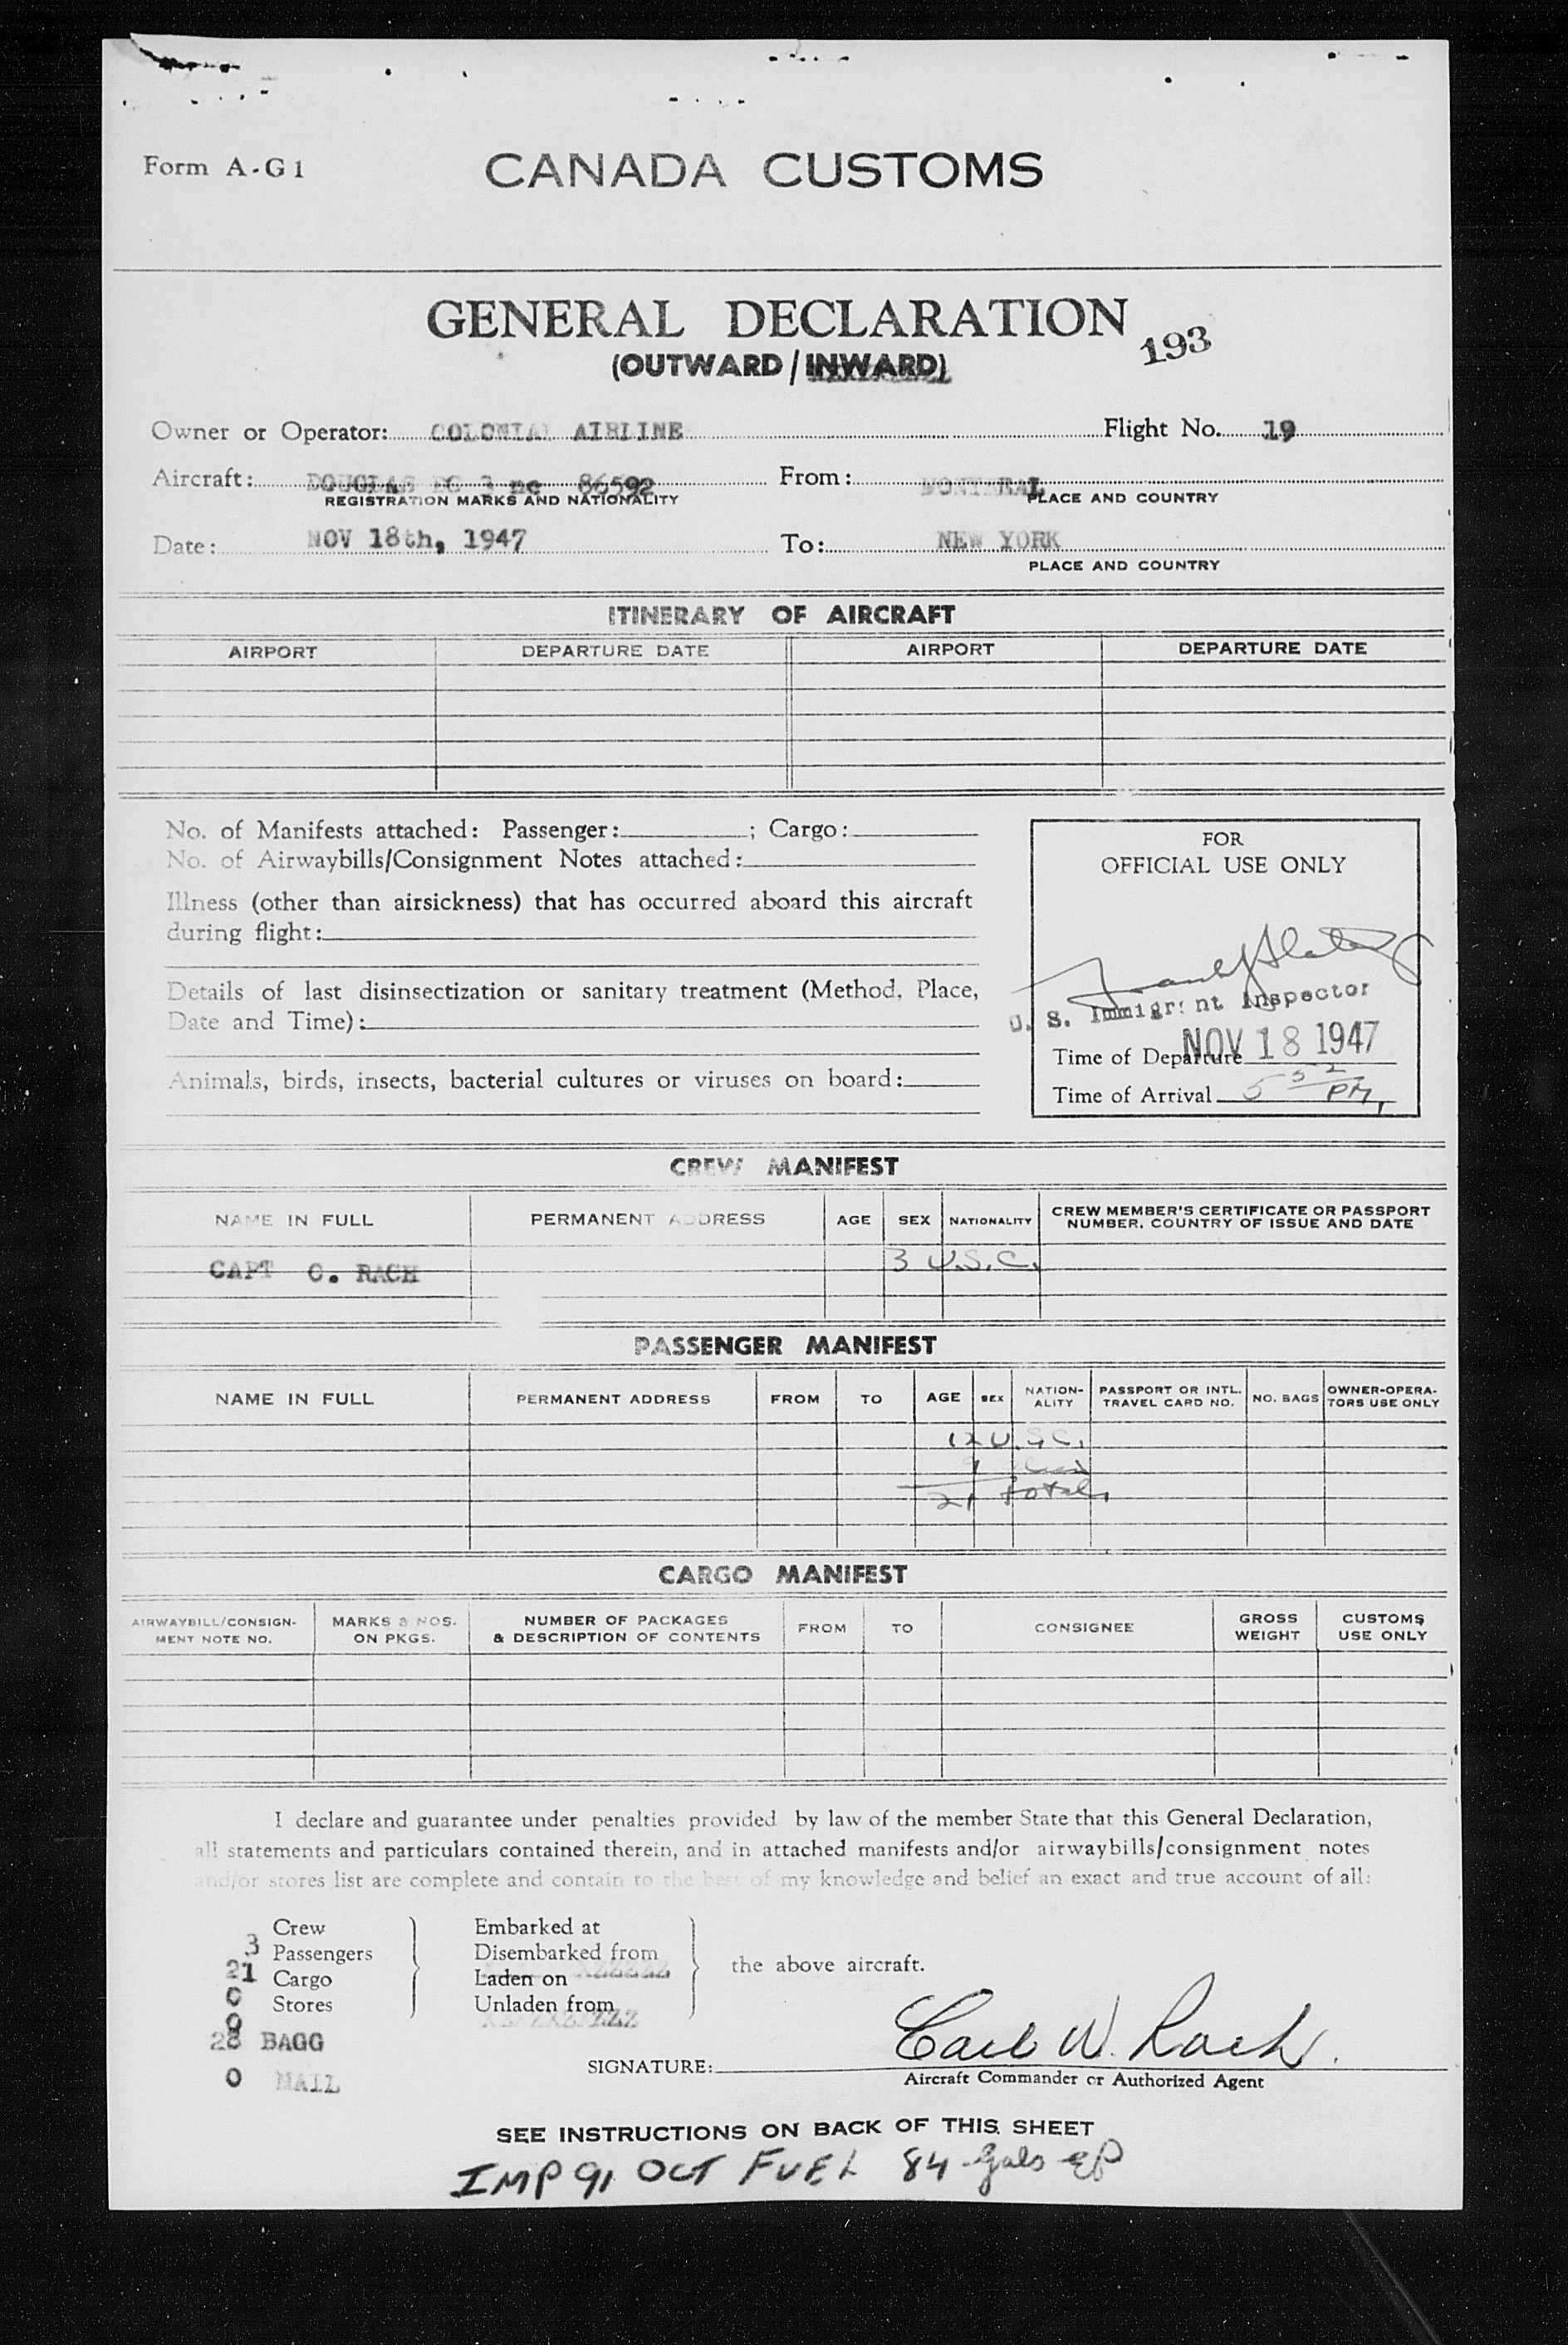 Form A-G1
CANADA CUSTOMS
GENERAL DECLARATION
193
(OUTWARD / INWARD)
Owner or Operator: COLONIAL AIRLINE Flight No. 19
Aircraft: DOUGLAS DC 3 nc 86592 From: MONTREAL
REGISTRATION MARKS AND NATIONALITY PLACE AND COUNTRY
Date: NOV 18th, 1947 To: NEW YORK
PLACE AND COUNTRY
ITINERARY OF AIRCRAFT
AIRPORT DEPARTURE DATE AIRPORT DEPARTURE DATE
No. of Manifests attached: Passenger: ; Cargo:
No. of Airwaybills/Consignment Notes attached:
Illness (other than airsickness) that has occurred aboard this aircraft
during flight:
Details of last disinsectization or sanitary treatment (Method, Place,
Date and Time):
Animals, birds, insects, bacterial cultures or viruses on board:
FOR
OFFICIAL USE ONLY
U. S. Immigrant Inspector
NOV 18 1947
Time of Departure
Time of Arrival 5 52 PM,
CREW MANIFEST
NAME IN FULL PERMANENT ADDRESS AGE SEX NATIONALITY CREW MEMBER'S CERTIFICATE OR PASSPORT
NUMBER, COUNTRY OF ISSUE AND DATE
3 U.S.C.
CAPT C. RACH
PASSENGER MANIFEST
NAME IN FULL PERMANENT ADDRESS FROM TO AGE SEX NATION-
ALITY PASSPORT OR INTL.
TRAVEL CARD NO. NO. BAGS OWNER-OPERA-
TORS USE ONLY
12 U.S.C.
9
21 total,
CARGO MANIFEST
AIRWAYBILL/CONSIGN-
MENT NOTE NO. MARKS & NOS.
ON PKGS. NUMBER OF PACKAGES
& DESCRIPTION OF CONTENTS FROM TO CONSIGNEE GROSS
WEIGHT CUSTOMS
USE ONLY
I declare and guarantee under penalties provided by law of the member State that this General Declaration,
all statements and particulars contained therein, and in attached manifests and/or airwaybills/consignment notes
and/or stores list are complete and contain to the best of my knowledge and belief an exact and true account of all:
Crew Embarked at
3 Passengers Disembarked from the above aircraft.
21 Cargo Laden on
0 Stores Unladen from
0
28 BAGG
0 MAIL
SIGNATURE: Carl W. Rach.
Aircraft Commander or Authorized Agent
SEE INSTRUCTIONS ON BACK OF THIS SHEET
IMP 91 OCT FUEL 84 gals